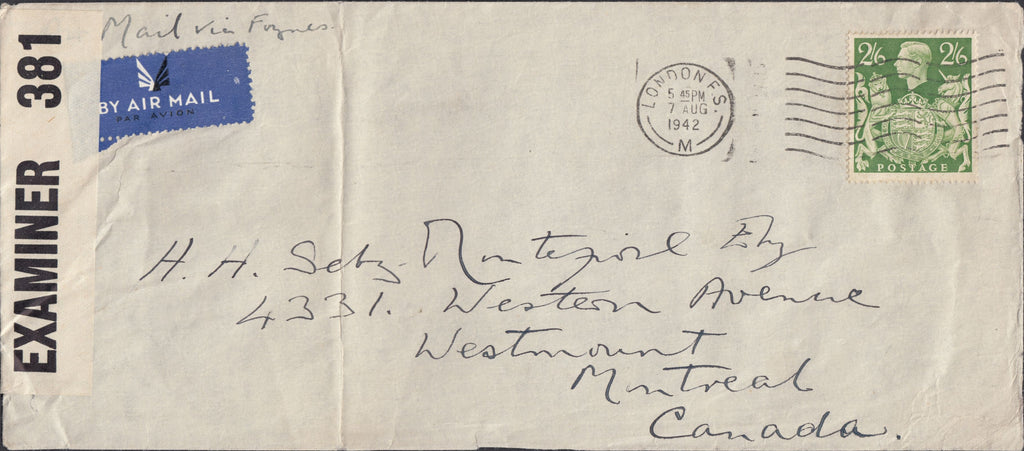 Mail via Foynes.
EXAMINER 381
BY AIR MAIL
PAR AVION
LONDON F.S.
5 45 PM
7 AUG
1942
M
2/6 2/6
POSTAGE
H. H. Seby Montefiore Esq
4331. Western Avenue
Westmount
Montreal
Canada.